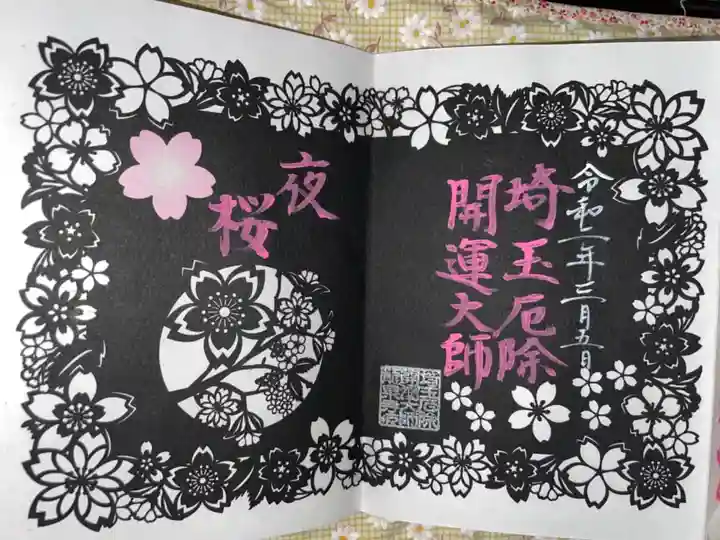 令和二年三月五日
埼玉厄除
開運大師
夜
桜